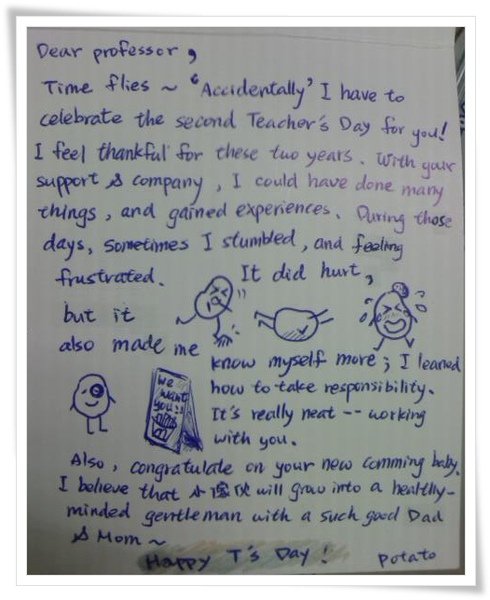 Dear professor,
Time flies ~ "Accidentally" I have to
celebrate the second Teacher's Day for you!
I feel thankful for these two years. With your
support & company, I could have done many
things, and gained experiences. During those
days, sometimes I stumbled, and feeling
frustrated. It did hurt,
but it
also made me know myself more; I learned
how to take responsibility.
It's really neat -- working
with you.
We
want
you!!
Also, congratulate on your new comming baby.
I believe that 小 伙 will grow into a healthy-
minded gentleman with a such good Dad
& Mom ~
Happy T's Day! potato